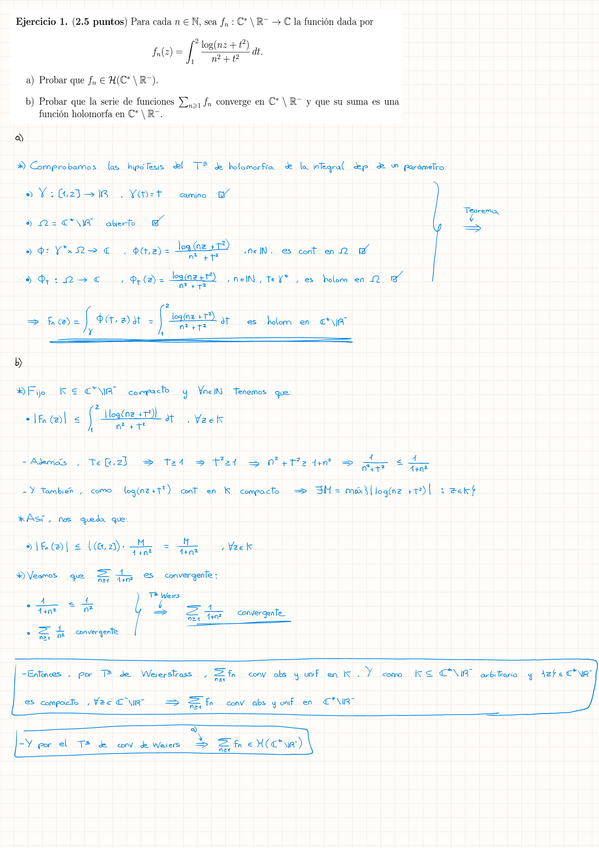 Ejercicio 1. (2.5 puntos) Para cada n ∈ ℕ, sea fₙ : ℂ* \ ℝ⁻ → ℂ la función dada por
fₙ(z) = ∫₁² log(nz + t²) / (n² + t²) dt.
a) Probar que fₙ ∈ ℋ(ℂ* \ ℝ⁻).
b) Probar que la serie de funciones ∑ₙ≥₁ fₙ converge en ℂ* \ ℝ⁻ y que su suma es una
función holomorfa en ℂ* \ ℝ⁻.
a)
*) Comprobamos las hipótesis del Tª de holomorfía de la integral dep de un parámetro:
•) γ : [1,2] → ℝ , γ(t) = t camino ☑
•) Ω = ℂ*\ℝ⁻ abierto ☑
Teorema ⇒
•) Φ : γ* × Ω → ℂ , Φ(t,z) = log(nz + t²) / (n² + t²) , n∈ℕ, es cont en Ω ☑
•) Φₜ : Ω → ℂ , Φₜ(z) = log(nz+t²) / (n² + t²) , n∈ℕ, t∈γ* , es holom en Ω ☑
⇒ fₙ(z) = ∫_γ Φ(t,z) dt = ∫₁² log(nz + t²) / (n² + t²) dt es holom en ℂ*\ℝ⁻
b)
*) Fijo K ⊆ ℂ*\ℝ⁻ compacto y ∀n∈ℕ tenemos que:
• |fₙ(z)| ≤ ∫₁² |log(nz + t²)| / (n² + t²) dt , ∀z∈K
- Además , t∈[1,2] ⇒ t≥1 ⇒ t²≥1 ⇒ n² + t² ≥ 1+n² ⇒ 1/(n²+t²) ≤ 1/(1+n²)
- Y también, como log(nz+t²) cont en K compacto ⇒ ∃M = máx{|log(nz + t²)| : z∈K}
* Así, nos queda que:
•) |fₙ(z)| ≤ l([1,2]) · M/(1+n²) = M/(1+n²) , ∀z∈K
*) Veamos que ∑ₙ≥₁ 1/(1+n²) es convergente:
• 1/(1+n²) ≤ 1/n² Tª Weiers ⇒ ∑ₙ≥₁ 1/(1+n²) convergente
• ∑ₙ≥₁ 1/n² convergente
- Entonces, por Tª de Weierstrass , ∑ₙ≥₁ fₙ conv abs y unif en K . Y como K ⊆ ℂ*\ℝ⁻ arbitrario y {z} ∈ ℂ*\ℝ⁻
es compacto , ∀z∈ ℂ*\ℝ⁻ ⇒ ∑ₙ≥₁ fₙ conv abs y unif en ℂ*\ℝ⁻
- Y por el Tª de conv de Weiers a) ⇒ ∑ₙ≥₁ fₙ ∈ ℋ(ℂ*\ℝ⁻)